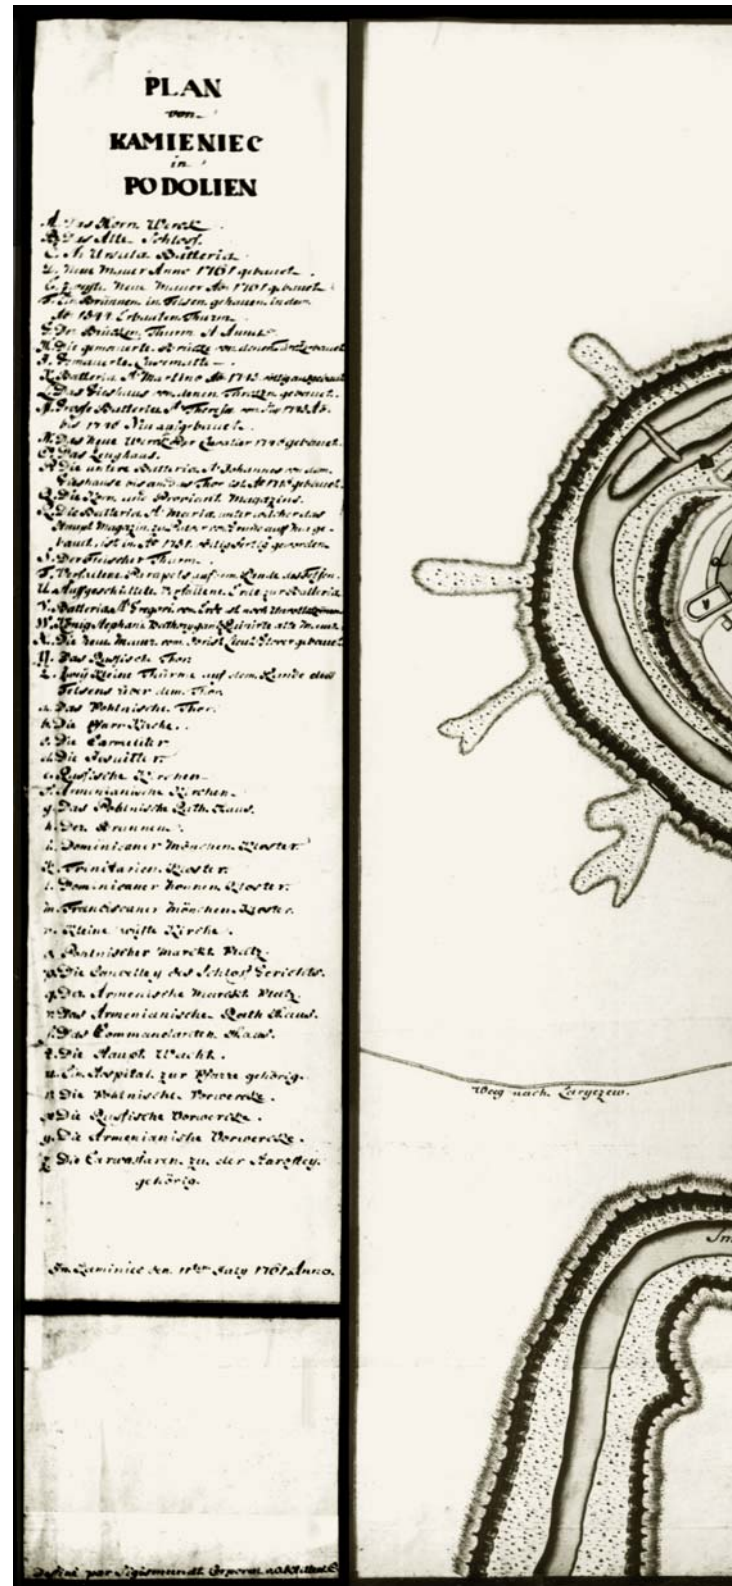 PLAN
von
KAMIENIEC
in
PODOLIEN
A. Das Horn Werck.
B. Das Alte Schloss.
C. St. Ursula Batteria.
D. Neue Mauer Anno 1761 gebauet.
E. Zweyte Neue Mauer Ao 1761 gebauet.
F. Ein Brünnen in Felsen gehauen, in dem
Ao 1544 Erbauten Thurm.
G. Der Brücken Thurm St Anna.
H. Die gemauerte Brücke von denen gebauet
J. Gemauerte Casematte.
K. Batteria St Martino Ao 1743 völlig ausgebauet
L. Das Gieshaus von denen gebauet.
M. Grosse Batteria St Theresa von
bis 1746 Neu aufgebauet.
N. Das Neue Werck Der Cavalier 1746 gebauet.
O. Das Zeughaus.
P. Die untere Batteria St Johannes von dem
Gieshause bis an das Thor ist gebauet.
Q. Die Korn und Proviant Magazins.
R. Die Batteria St Maria unter welcher das
Haupt Magazin zu Pulver von Grunde auf Neu ge-
bauet, ist in Ao völlig fertig geworden.
S. Der Thurm.
T. Verfallene Parapets auf dem Rande des Felsen.
U. Aufgeschüttete Verfallene Erde zur Batteria
V. Batteria St Gregori von Erde ist noch
W. König Stephani alte Mauer.
X. Die Neue Mauer vom gebauet
Y. Das Rusische Thor
Z. Zwey Kleine Thürme auf dem Rande des
Felsens über dem Thor
a. Das Pohlnische Thor.
b. Die Pfarr Kirche.
c. Die Carmeliter
d. Die Jesuitter.
e. Rusische Kirchen
f. Armenianische Kirchen.
g. Das Pohlnische Rath Haus.
h. Der Brunnen.
i. Dominicaner Mönchen Kloster.
k. Trinitarien Kloster.
l. Dominicaner Nonnen Kloster.
m. Franciscaner Mönchen Kloster.
n. Kleine wüste Kirche.
o. Pohlnischer Marckt Platz.
p. Die Cancelley des Schlos Gerichts.
q. Der Armenische Marckt Platz.
r. Das Armenianische Rath Haus.
s. Das Commandanten Haus.
t. Die Haupt Wacht.
u. Ein Hospital zur Pfarre gehörig.
Die Pohlnische Vorwercke.
x. Die Rusische Vorwercke.
y. Die Armenianische Vorwercke.
z. Die zu der Starostey
gehörig.
Im Caminiec den 11ten July 1761 Anno.
Weeg nach
Sm
A
Desiné par Sigismundt